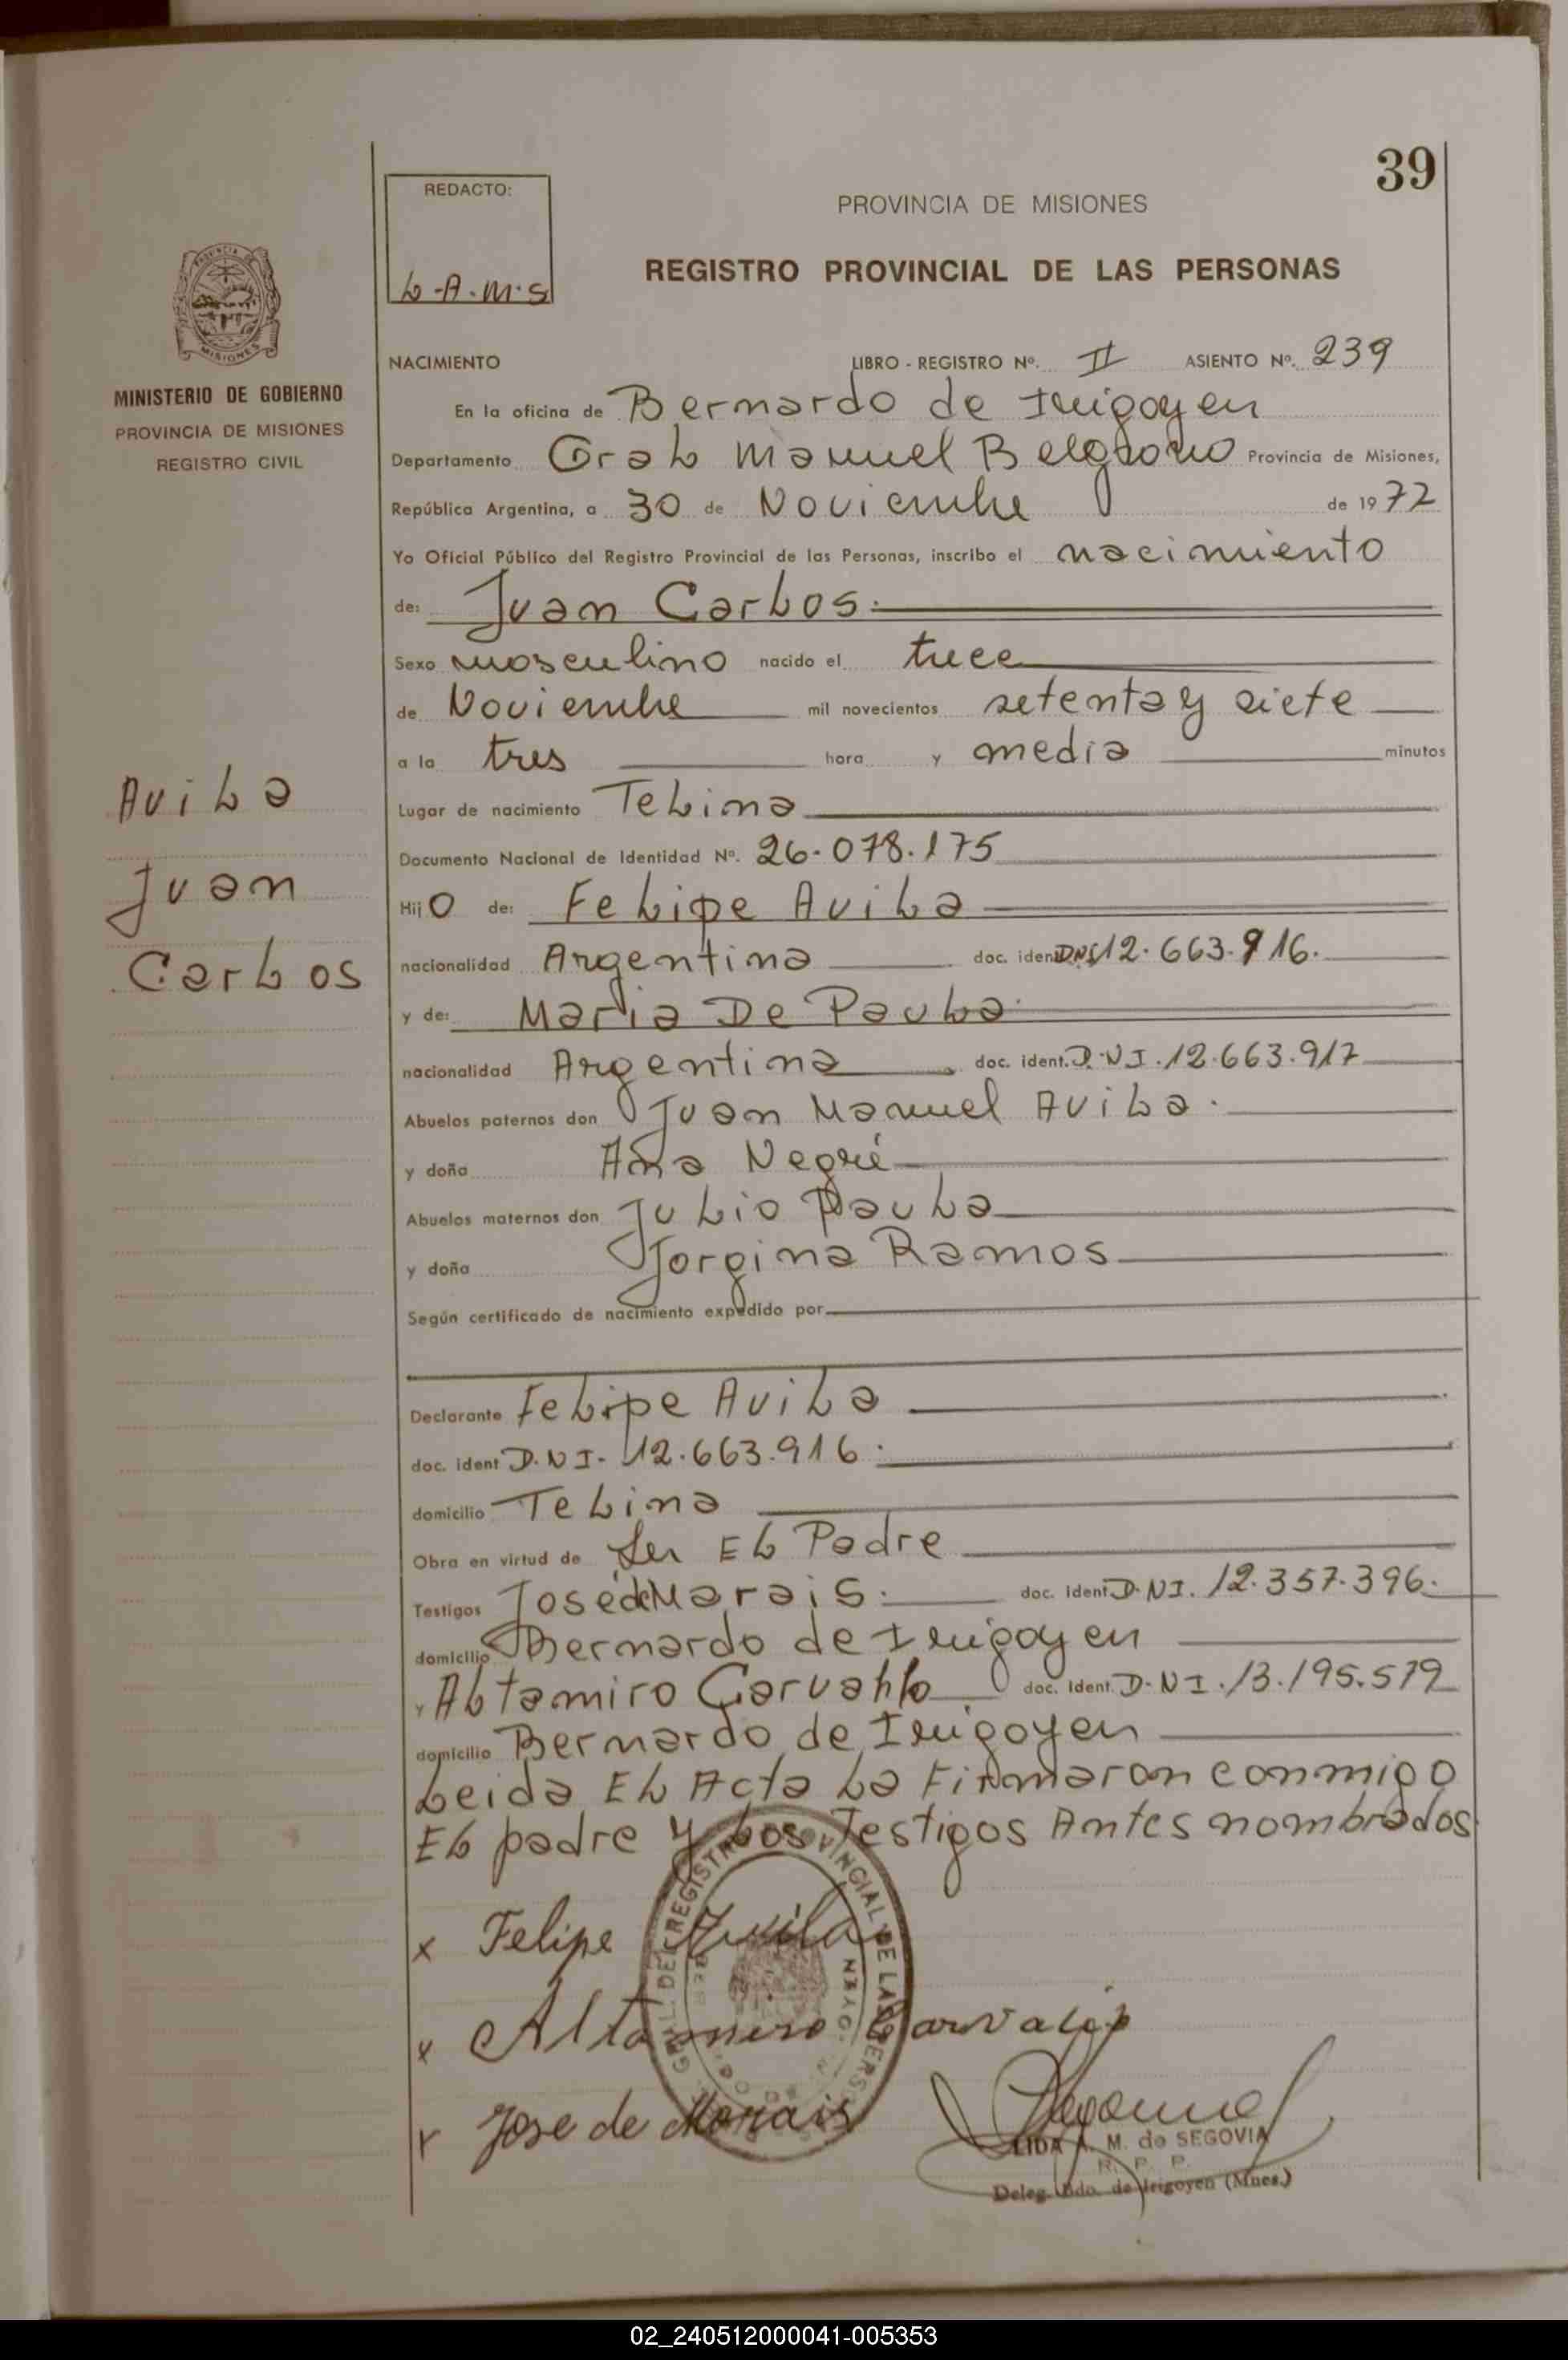 39
REDACTO:
L-A.M.S
PROVINCIA DE MISIONES
REGISTRO PROVINCIAL DE LAS PERSONAS
PROVINCIA DE
MISIONES
MINISTERIO DE GOBIERNO
PROVINCIA DE MISIONES
REGISTRO CIVIL
NACIMIENTO LIBRO - REGISTRO Nº. II ASIENTO Nº. 239
En la oficina de Bernardo de Irigoyen
Departamento Gral Manuel Belgrano Provincia de Misiones,
República Argentina, a 30 de Noviembre de 1972
Yo Oficial Público del Registro Provincial de las Personas, inscribo el nacimiento
de: Juan Carlos.
Sexo masculino nacido el trece
de Noviembre mil novecientos setenta y siete
a la tres hora y media minutos
Avila
Juan
Carlos
Lugar de nacimiento Telina
Documento Nacional de Identidad Nº. 26.078.175
Hijo de: Felipe Avila
nacionalidad Argentina doc. ident. DNI 12.663.916.
y de: Maria De Paula
nacionalidad Argentina doc. ident. D.N.I. 12.663.917
Abuelos paternos don Juan Manuel Avila.
y doña Ana Negré
Abuelos maternos don Julio Paula
y doña Jorgina Ramos
Según certificado de nacimiento expedido por
Declarante Felipe Avila
doc. ident D.N I- 12.663.916.
domicilio Telina
Obra en virtud de Ser El Padre
Testigos José de Marais. doc. ident D.NI. 12.357.396.
domicilio Bernardo de Irigoyen
y Altamiro Carvahlo doc. ident. D-NI. 13.195.579
domicilio Bernardo de Irigoyen
Leida El Acta La Firmaron conmigo
El padre y Los Testigos Antes nombrados
x Felipe Avila
x Altamiro Carvalio
x Jose de Morais
LIDA A. M. de SEGOVIA
R. P. P.
Deleg. Bdo. de Irigoyen (Mnes.)
02_240512000041-005353